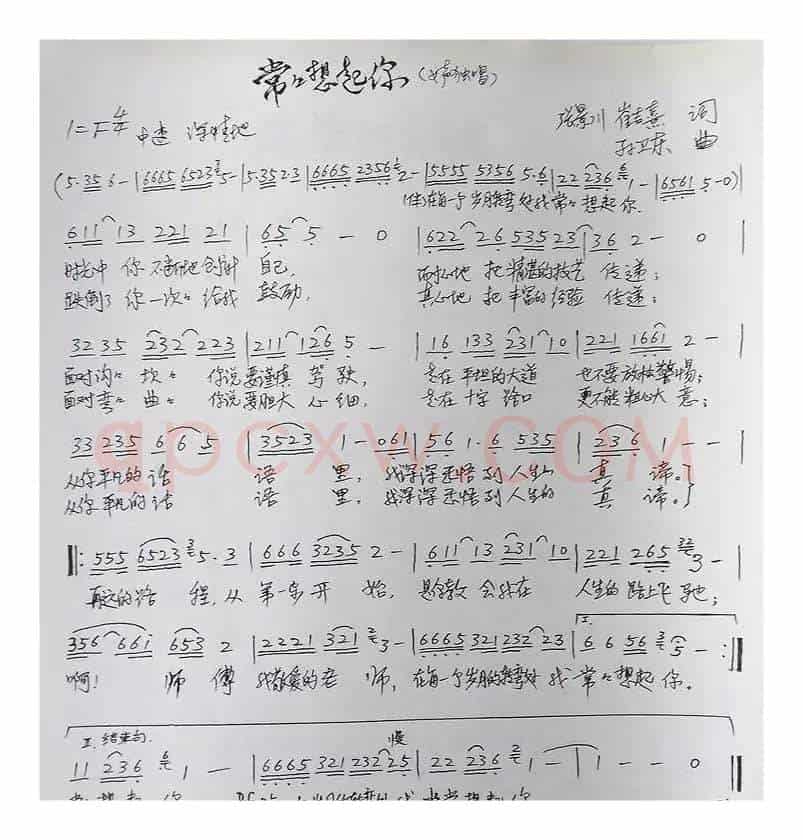 常常想起你(女声独唱)
1=F 4/4 中速 深情地
张景川 崔吉熹 词
孙卫东 曲
(5·35 6-|6665 6523 5-|5·35 2·3|6665 2356 2-|5555 5356 5·6|22 236 1-|6561 5-0)|
在每一个岁月的转弯处我常常想起你.
611 13 221 21|65 5-0|622 26 535 23|36 2-0|
时光中 你不断地创新 自己, 而热心地 把精湛的技艺 传递;
跌倒了 你一次次给我 鼓励, 真心地 把丰富的经验 传递;
32 35 232 223|211 126 5-|16 133 231 10|221 1661 2-|
面对沟沟坎坎 你说要谨慎 驾驶, 走在平坦的大道 也不要放松警惕;
面对弯弯曲曲 你说要胆大 心细, 走在十字路口 更不能粗心大意;
33 235 66 5|3523 1-061|56 1·6 535|236 1--|
从你平凡的话 语 里, 我深深悉悟到人生的 真 谛.}
从你平凡的话 语 里, 我深深悉悟到人生的 真 谛.}
‖:555 6523 5·3|666 3235 2-|611 13 231 10|221 265 3-|
再远的路 程,从 第一步开 始, 是您教 会我在 人生的路上飞驰;
356 661 653 2|2221 321 3-|6665 321 232 23|I. 6 6 56 5-:‖
啊! 师 傅 我敬爱的老 师, 在每一个岁月的转弯处 我常常想起你.
II. 结束句. 慢
11 236 1-|6665 321 232 25|22 236 1-|1--0‖
qpcxw.com